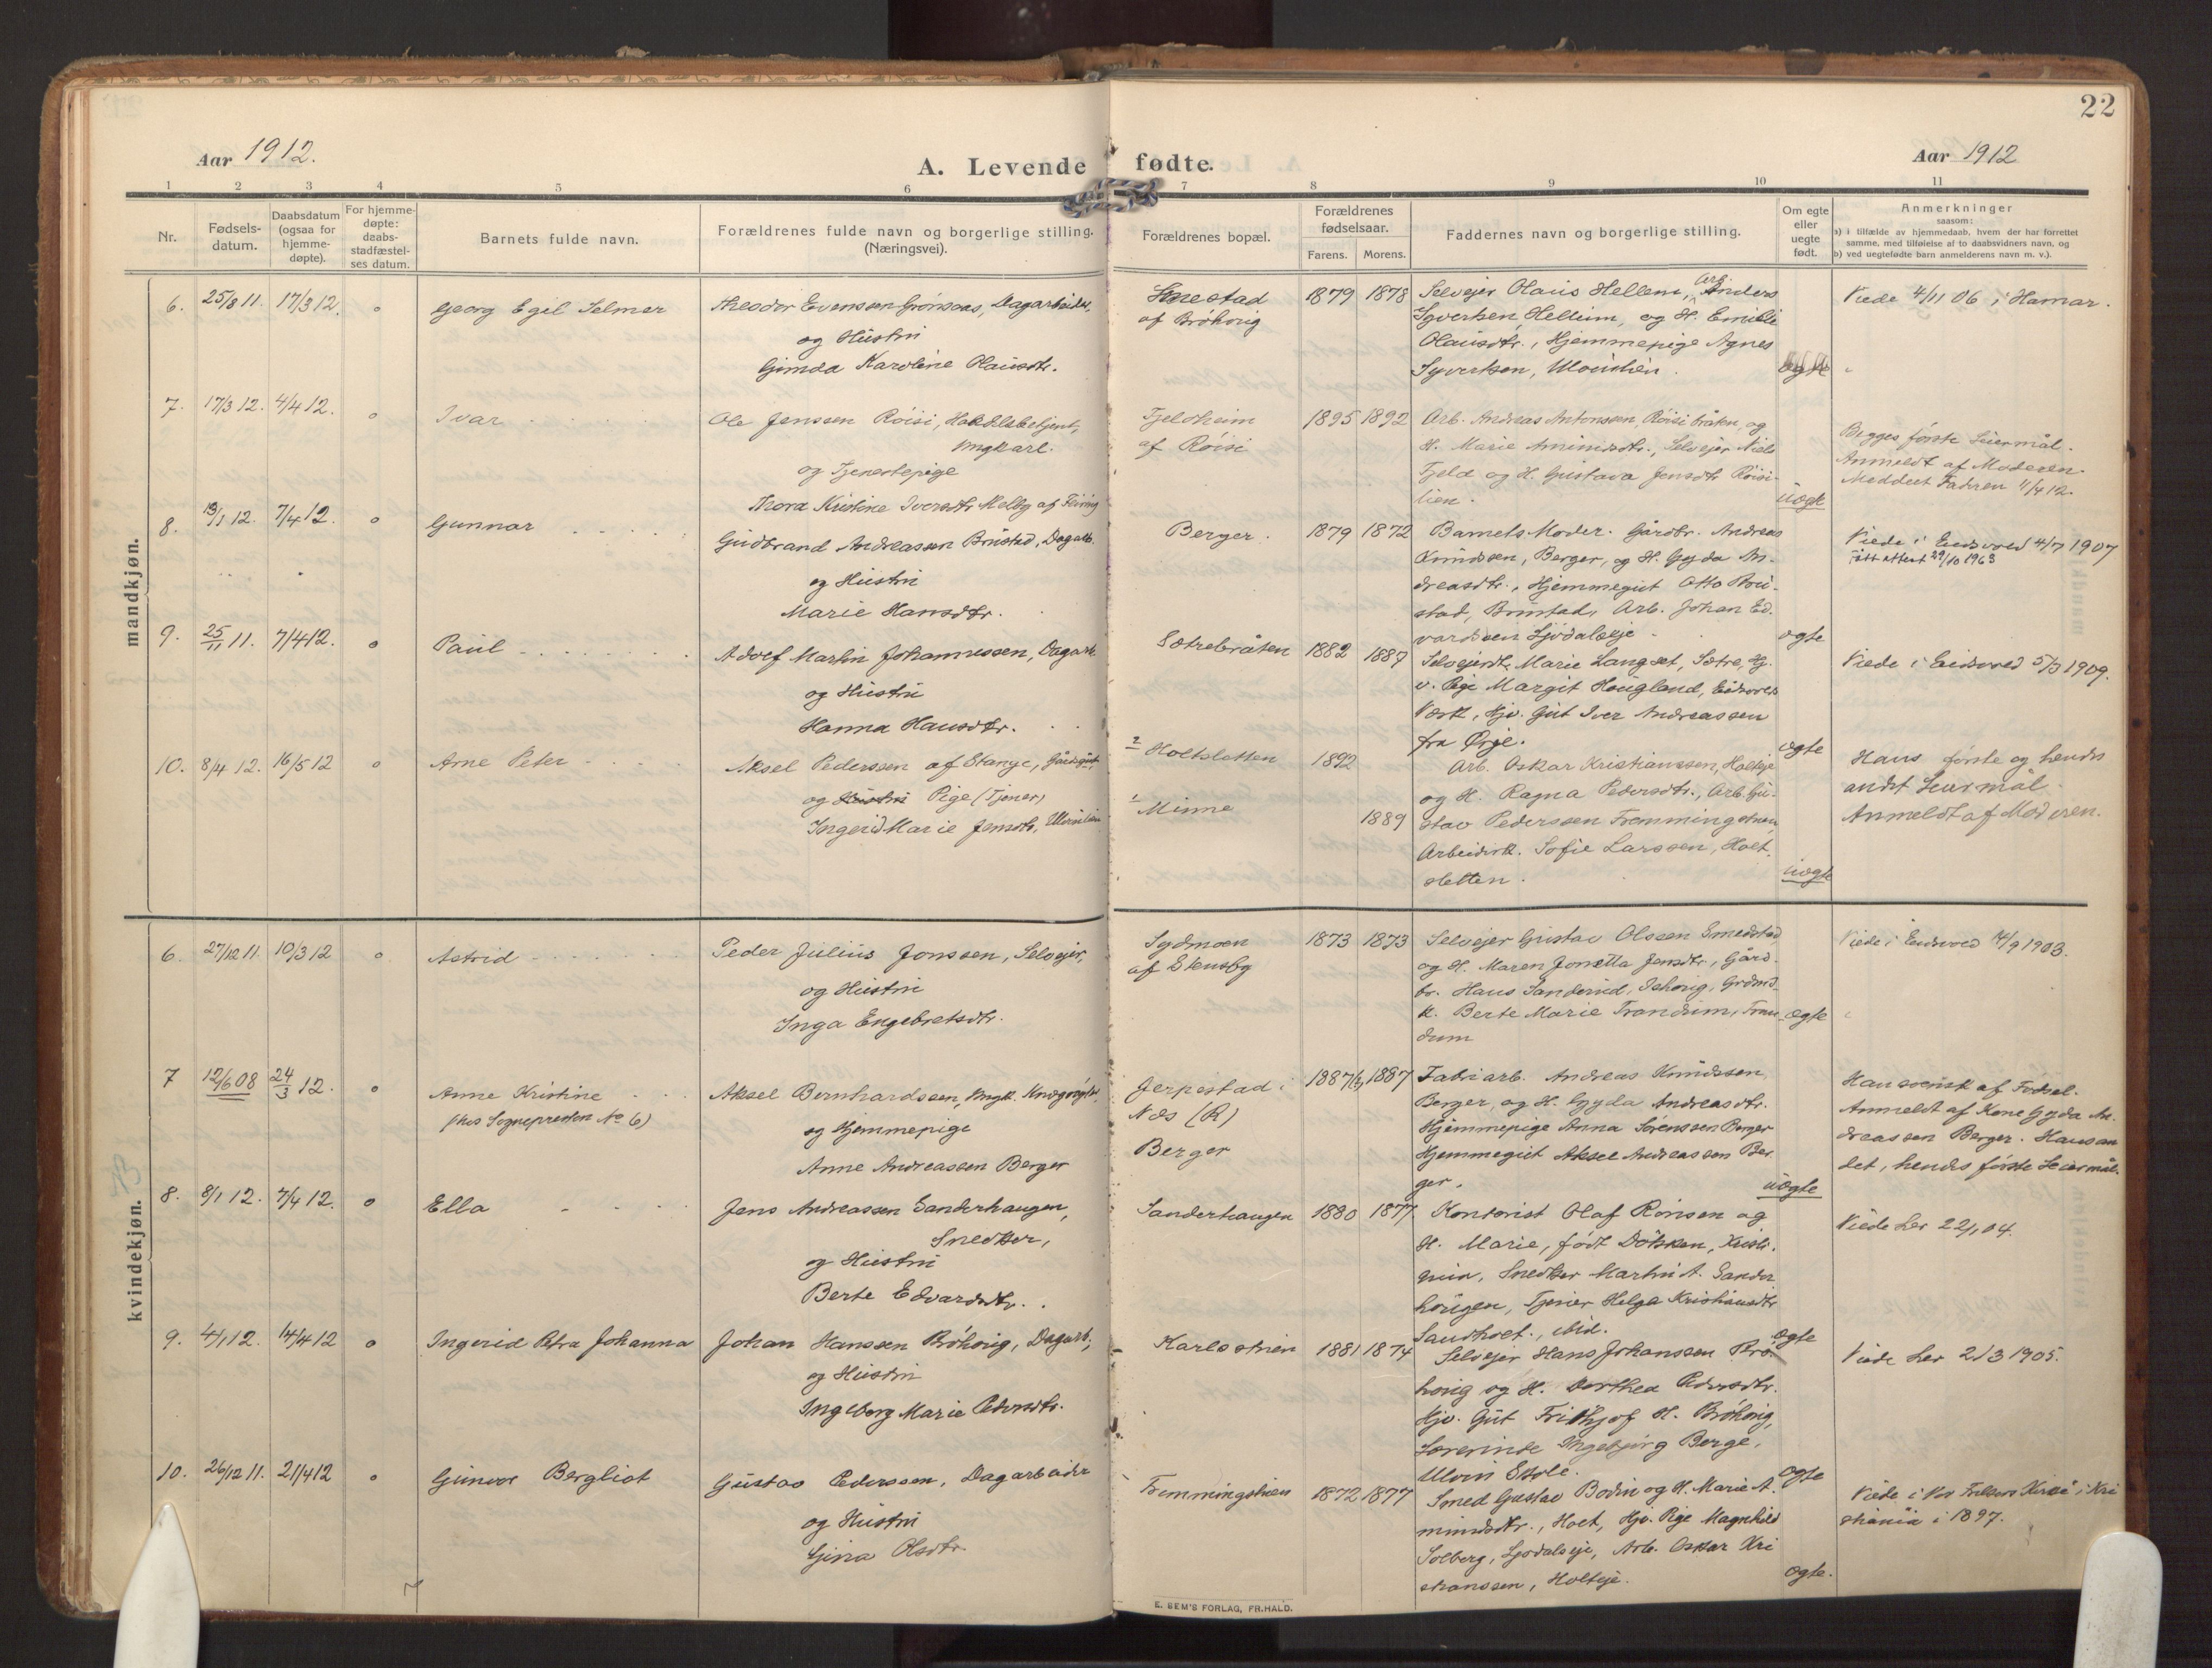 22
Aar 1912.
A. Levende fødte.
Aar 1912
1 2 3 4 5 6 7 8 9 10 11
Nr.
Fødsels-
datum.
Daabsdatum
(ogsaa for
hjemme-
døpte).
For hjemme-
døpte:
daabs-
stadfæstel-
ses datum.
Barnets fulde navn.
Forældrenes fulde navn og borgerlige stilling.
(Næringsvei).
Forældrenes bopæl.
Forældrenes
fødselsaar.
Farens. Morens.
Faddernes navn og borgerlige stilling.
Om egte
eller
uegte
født.
Anmerkninger
saasom:
a) i tilfælde av hjemmedaab, hvem der har forrettet
samme, med tilføielse af to daabsvidners navn, og
b) ved uegtefødte barn anmelderens navn m. v.).
mandkjøn.
6. 25/8 11. 17/3 12. o Georg Egil Selmer
Theodor Evensen Grönaas, Dagarbeider,
og Hustru
Gimda Karoline Olausdtr.
af Bröhorig
1879 1878
Selvejer Olaus Hellem, Arb. Anders
Syversen Hellum, og H. Emilie
Olausdtr., Hjemmepige Agnes
Syversen,
Viede 4/11 06 i Hamar.
7. 17/3 12. 4/4 12. o Ivar
Ole Jenssen Röisi, Handelsbetjent,
Ungkarl.
og Tjenestepige
Thora Kristine Iversdtr Melby af Feiring
Fjeldheim
af Röisi
1895 1892
Arb. Andreas Antonssen, Röisibråten, og
H. Marie Amundsdtr., Selvejer Niels
Fjeld og H. Gustava Jensdtr Röisi-
lien.
uægte
Begges første Leiermål.
Anmeldt af Moderen.
Meddelt Faderen 11/4 12.
8. 13/1 12. 7/4 12. o Gunnar
Gudbrand Andreassen Brustad, Dagarb.
og Hustru
Marie Hansdtr.
Berger.
1879 1872
Barnets Moder. Gårdbr. Andreas
Knudsen, Berger, og H. Gyda An-
dreasdtr., Hjemmegut Otto Bru-
stad, Brustad, Arb. Johan Ed-
vardsen Ljödalseje.
ægte
Viede i Eidsvold 4/7 1907
Født attest 29/10 1963
9. 25/11 11. 7/4 12. o Paul
Adolf Martin Johannessen, Dagarb.
og Hustru
Hanna Hansdtr.
Sætrebråten
1882 1887
Selvejerdtr. Marie Langset, Sætre, Hj.
v. Pige Margit Hougland, Eidsvold
Værk, Hjv. Gut Iver Andreassen
fra Ørje.
ægte
Viede i Eidsvold 5/3 1909.
10. 8/4 12. 16/5 12 o Arne Peter
Aksel Pederssen af Stange, Gårdsgut,
og Hustru Pige (Tjener)
Ingerid Marie Jensdtr,
2 Holtsletten
1 Minne
1892
1889
Arb. Oskar Kristianssen, Holteje
og H. Ragna Pedersdtr., Arb. Gu-
stav Pederssen Fremmingstuen,
Arbeidersk. Sofie Larssen, Holt-
sletten.
uægte
Hans første og hendes
andet Leiermål.
Anmeldt af Moderen.
kvindekjøn.
6. 27/12 11. 10/3 12 o Astrid
Peder Julius Jonssen, Selvejer,
og Hustru
Inga Engebretsdtr.
Sydmoen
af Stensby
1873 1873
Selvejer Gustav Olssen Smedstad
og H. Maren Jonetta Jensdtr., Gård-
br. Hans Sanderud, Ishorig, Grdmd.
k. Berte Marie Trandum, Tran-
dum
ægte
Viede i Eidsvold 14/9 1903.
7 12/6 08 24/3 12. o Anne Kristine
(hos Sognepresten No 6)
Aksel Bernhardssen, Ungk.
og Hjemmepige
Anne Andreassen Berger
Jerpestad i
Næs (R)
Berger
1887 1887
Fabriarb. Andreas Knudssen
Berger, og H. Gyda Andreasdtr.
Hjemmepige Anna Sörenssen Berger
Hjemmegut Aksel Andreassen Ber-
ger.
uægte
Han svensk af Fødsel.
Anmeldt af Kone Gyda An-
dreassen Berger. Hans an-
det, hendes første Leiermål.
8. 8/1 12. 7/4 12. o Ella
Jens Andreassen Sanderhaugen,
Snedker,
og Hustru
Berte Edvardsdtr.
Sanderhaugen
1880 1877
Kontorist Olaf Ronsen og
H. Marie, født Dölsken, Kristi-
ania, Snedker Martin A. Sander-
haugen, Tjener Helga Kristiansdtr
Sandholt., ibid.
ægte
Viede her 22/1 04.
9. 4/1 12. 14/4 12 o Ingerid Petra Johanna
Johan Hanssen Bröhorig, Dagarb.,
og Hustru
Ingeborg Marie Pedersdtr.
Karlsstuen
1881 1874
Selvejer Hans Johanssen Brö-
horig og H. Dorthea Pedersdtr.
Hjv. Gut Frithjof H. Bröhorig,
Lærerinde Ingebjörg Berge,
Ulvin Skole.
ægte
Viede her 2/3 1905.
10. 26/12 11. 21/4 12 o Gunvor Bergliot
Gustav Pederssen, Dagarbeider
og Hustru
Gina Olsdtr.
Femmingstuen
1872 1877
Smed Gustav Bodin og H. Marie A-
mundsdtr., Holt, Hjv. Pige Magnhild
Solberg, Ljödalseje, Arb. Oskar Kri-
stianssen, Holteje.
ægte.
Viede i Vor Frelsers Kirke i Kri-
stiania i 1897.
E. SEM'S FORLAG, FR.HALD.